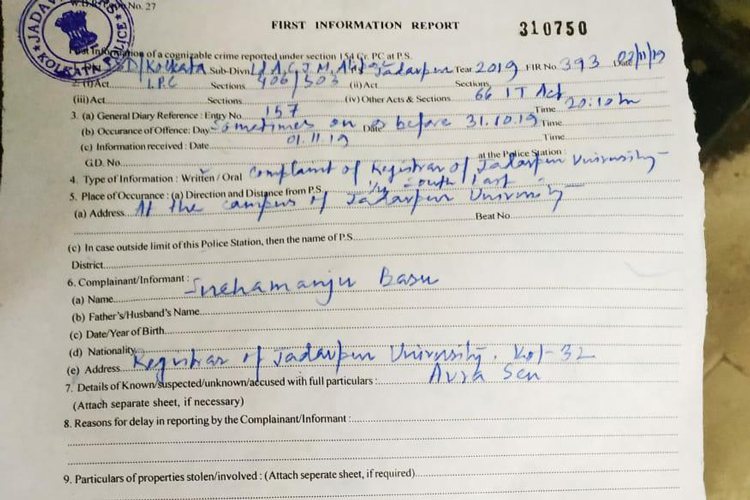 No. 27
JADAV KOLKATA POLICE
FIRST INFORMATION REPORT 310750
of a cognizable crime reported under section 154 Cr. PC. at P.S.
SD/Kolkata Sub-Divn Ld A.C.J.M. Jadavpur Year 2019 FIR No. 393 Date 02/11/19
(i) Act I.P.C Sections 406/503 (ii) Act Sections
(iii) Act Sections (iv) Other Acts & Sections 66 IT Act
3. (a) General Diary Reference : Entry No. 157 Time 20:10 hr
(b) Occurance of Offence: Day Sometimes on Date & before 31.10.19 Time
(c) Information received : Date 01.11.19 Time
G.D. No. at the Police Station :
4. Type of Information : Written / Oral Complaint of Registrar of Jadavpur University
5. Place of Occurance : (a) Direction and Distance from P.S. South / East
(a) Address At the campus of Jadavpur University
Beat No.
(c) In case outside limit of this Police Station, then the name of P.S.
District
6. Complainant/Informant :
(a) Name Snehamanju Basu
(b) Father's/Husband's Name
(c) Date/Year of Birth
(d) Nationality
(e) Address Registrar of Jadavpur University. Kol-32
7. Details of Known/suspected/unknown/accused with full particulars : Avra Sen
(Attach separate sheet, if necessary)
8. Reasons for delay in reporting by the Complainant/Informant :
9. Particulars of properties stolen/involved : (Attach seperate sheet, if required)